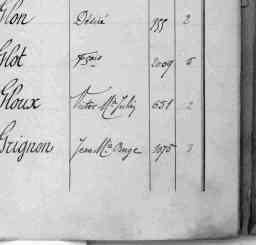 Glon Désiré 155 2
Glot Fçois 2009 5
Gloux Victor Mie 651 2
Grignon Jean Mie Ange 1075 3